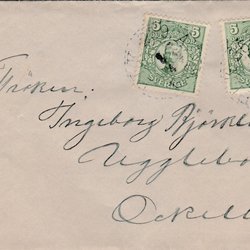 5 5 5
Fröken
Ingeborg Björkl
Ugglebo
Ockelb